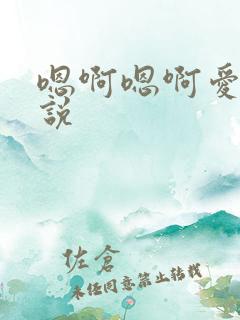 嗯啊嗯啊愛
說
佐倉
未经同意禁止转载